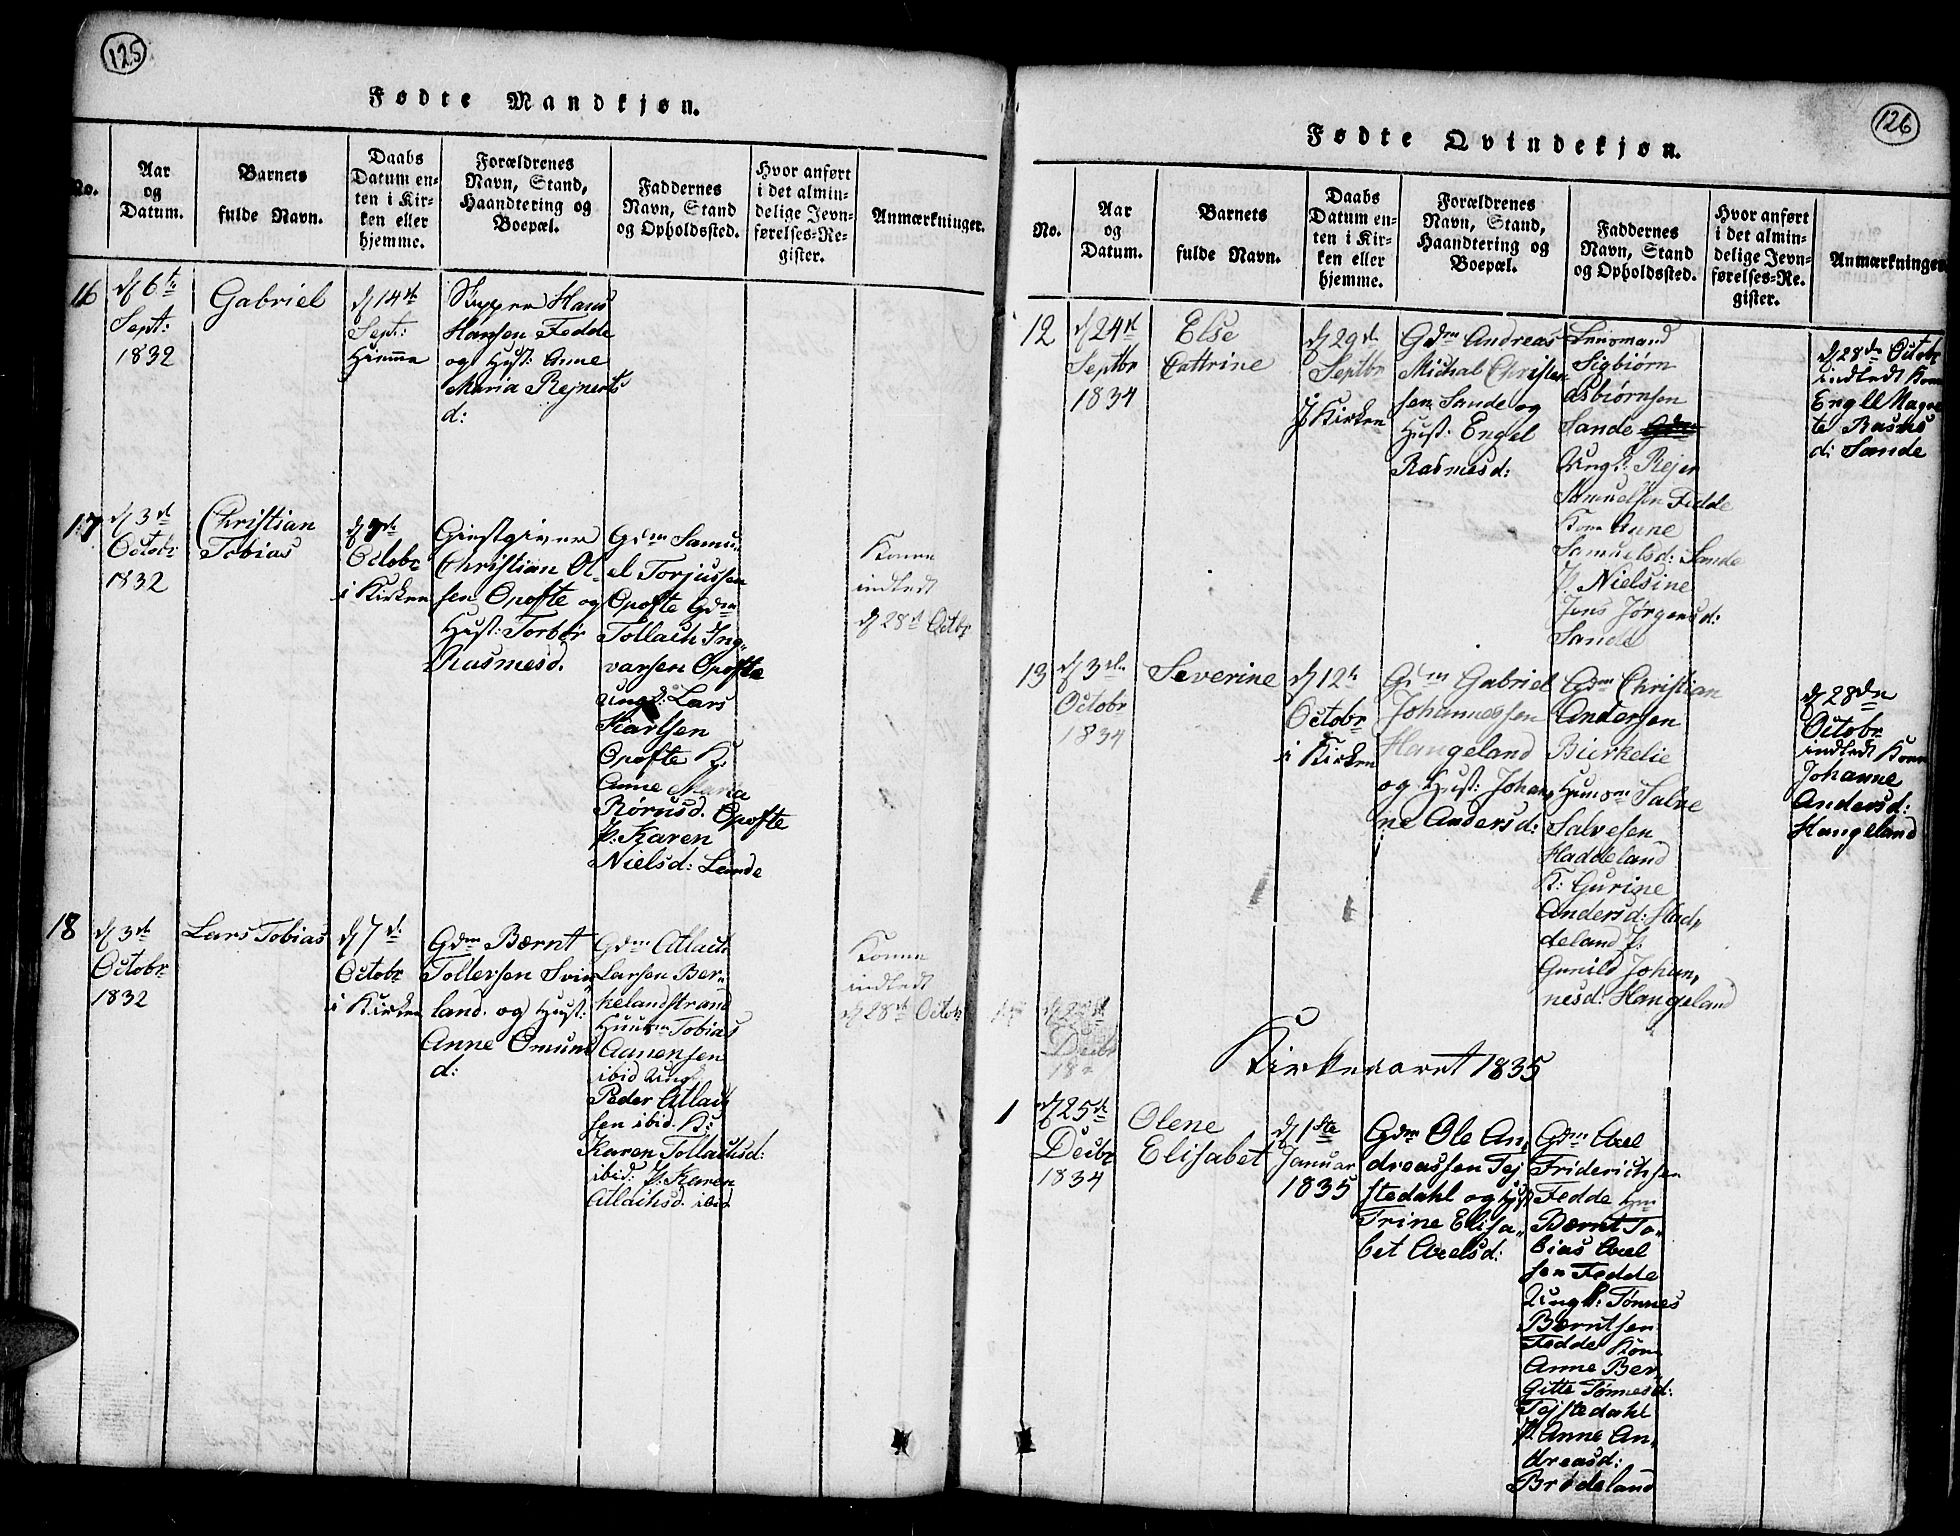 125
Fødte Mandkjøn.
No.
Aar
og
Datum.
Barnets
fulde Navn.
Daabs
Datum en-
ten i Kir-
ken eller
hjemme.
Forældrenes
Navn, Stand,
Haandtering og
Boepæl.
Faddernes
Navn, Stand
og Opholdssted.
Hvor anført
i det almin-
delige Jevn-
førelses-Re-
gister.
Anmærkninger.
16
d 6te
Sept:
1832
Gabriel
d 14de
Sept:
Hjemme
Skipper Hans
Hansen Fedde
og Hust: Anne
Maria Rejnerts
d:
17
d 3de
Octobr
1832
Christian
Tobias
d 7de
Octobr
i Kirken
Giestgiver
Christian Ol-
sen Opofte og
Hust: Torbor
Rasmesd.
Gdm Samu-
el Torjussen
Opofte Gdm
Tollach Ing-
varsen Opofte
Ungk: Lars
Karlsen
Opofte K:
Anne Maria
Rørusd. Opofte
P: Karen
Nielsd: Lande
Konen
indledt
d 28de Octbr
18
d 3de
Octobr
1832
Lars Tobias
d 7de
Octobr
i Kirken
Gdm Bærnt
Tollersen Svin-
land. og Hust:
Anne Omunds
d:
Gdm Atlach
Larsen Ber-
kelandstrand
Huusm Tobias
Aanensen
ibid Ungk
Peder Atlach
sen ibid. K:
Karen Tollachsd:
ibid: P: Karen
Atlachsd. ibid
Konen
indledt
d 28de Octobr
126
Fødte Qvindekjøn.
No.
Aar
og
Datum.
Barnets
fulde Navn.
Daabs
Datum en-
ten i Kir-
ken eller
hjemme.
Forældrenes
Navn, Stand,
Haandtering og
Boepæl.
Faddernes
Navn, Stand
og Opholdssted.
Hvor anført
i det almin-
delige Jevn-
førelses-Re-
gister.
Anmærkninger
12
d 24de
Septbr
1834
Else
Cattrine
d 29de
Septbr
I Kirken
Gdm Andreas
Michal Christen
sen Sande og
Hust: Engel
Rasmesd:
Lensmand
Sigbiørn
Asbiørnsen
Sande
Ungk: Rejer
Samuelsen Fedde
Kone Anne
Samuelsd: Sande
P. Nielsine
Jens Jørgensd:
Sande
d 28de Octobr
indledt Kone
Engell Magre
te Rasms
d: Sande
13
d 3de
Octobr
1834
Severine
d 12te
Octobr
i Kirken
Gdm Gabriel
Johannessen
Haugeland
og Hust: Johan-
ne Andersd:
Gdm Christian
Andersen
Bierkelie
Huusm Salve
Salvesen
Haddeland
K: Gurine
Andersd: Had-
deland P:
Gunild Johan-
nesd: Haugeland
d 28de
Octobr
indledt Kone
Johanne
Andersd:
Haugeland
Decbr
Kirkeaaret 1835
1
d 25de
Decbr
1834
Olene
Elisabet
d 1ste
Januar
1835
Gdm Ole An-
dreassen Tej
stedahl og Hust
Trine Elisa-
bet Axelsd:
Gdm Axel
Friderichsen
Fedde Gdm
Bærnt To-
bias Axel
sen Fedde
Ungk: Tønnes
Bærntsen
Fedde Kone
Anne Ber-
gitte Tønnesd:
Tejstedahl
P. Anne An-
dreasd:
Brødeland